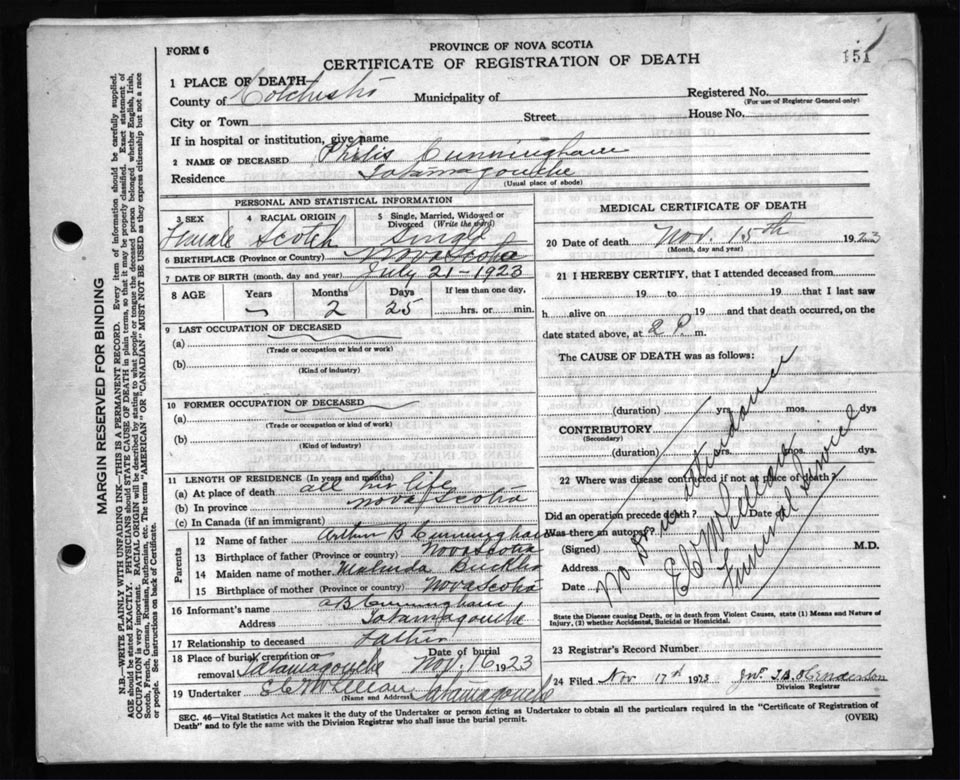 FORM 6
PROVINCE OF NOVA SCOTIA
CERTIFICATE OF REGISTRATION OF DEATH
151
1 PLACE OF DEATH
County of Colchester Municipality of
Registered No.
(For use of Registrar General only)
City or Town Street House No.
If in hospital or institution, give name
2 NAME OF DECEASED Philis Cunningham
Residence Tatamagouche
(Usual place of abode)
PERSONAL AND STATISTICAL INFORMATION
3 SEX Female
4 RACIAL ORIGIN Scotch
5 Single, Married, Widowed or Divorced (Write the word) Single
6 BIRTHPLACE (Province or Country) Nova Scotia
7 DATE OF BIRTH (month, day and year) July 21 - 1923
8 AGE Years Months 2 Days 25 If less than one day, hrs. or min.
9 LAST OCCUPATION OF DECEASED
(a)
(Trade or occupation or kind or work)
(b)
(Kind of industry)
10 FORMER OCCUPATION OF DECEASED
(a)
(Trade or occupation or kind of work)
(b)
(Kind of industry)
11 LENGTH OF RESIDENCE (In years and months)
(a) At place of death all her life
(b) In province Nova Scotia
(c) In Canada (if an immigrant)
Parents
12 Name of father Arthur B Cunningham
13 Birthplace of father (Province or country) Nova Scotia
14 Maiden name of mother Malinda
15 Birthplace of mother (Province or country) Nova Scotia
16 Informant's name A B Cunningham
Address Tatamagouche
17 Relationship to deceased Father
18 Place of burial cremation or removal Tatamagouche Date of burial Nov. 16 1923
19 Undertaker Tatamagouche
(Name and Address)
MEDICAL CERTIFICATE OF DEATH
20 Date of death Nov. 15th 1923
(Month, day and year)
21 I HEREBY CERTIFY, that I attended deceased from
19 to 19 that I last saw
h alive on 19 and that death occurred, on
date stated above, at 2 P. m.
The CAUSE OF DEATH was as follows:
(duration) yrs. mos. dys
CONTRIBUTORY
(Secondary)
(duration) yrs. mos. dys
22 Where was disease contracted if not at place of death?
Did an operation precede death? Date of
Was there an autopsy?
(Signed) M.D.
Address
Date
No Dr in attendance
Funeral
State the Disease causing Death, or in death from Violent Causes, state (1) Means and Nature of
Injury, (2) whether Accidental, Suicidal or Homicidal.
23 Registrar's Record Number
24 Filed Nov 17th 1923 Henderson
Division Registrar
SEC. 46—Vital Statistics Act makes it the duty of the Undertaker or person acting as Undertaker to obtain all the particulars required in the "Certificate of Registration of
Death" and to fyle the same with the Division Registrar who shall issue the burial permit.
(OVER)
MARGIN RESERVED FOR BINDING
N.B.—WRITE PLAINLY WITH UNFADING INK—THIS IS A PERMANENT RECORD. Every item of information should be carefully supplied.
AGE should be stated EXACTLY. PHYSICIANS should STATE CAUSE OF DEATH in plain terms, so that it may be properly classified. Exact statement of
OCCUPATION is very important. RACIAL ORIGIN will be described by stating to what people or tongue the deceased person belonged whether English, Irish,
Scotch, French, German, Russian, Ruthenian, etc. The terms "AMERICAN" OR "CANADIAN" MUST NOT BE USED as they express citizenship but not a race
or people. See instructions on back of Certificate.